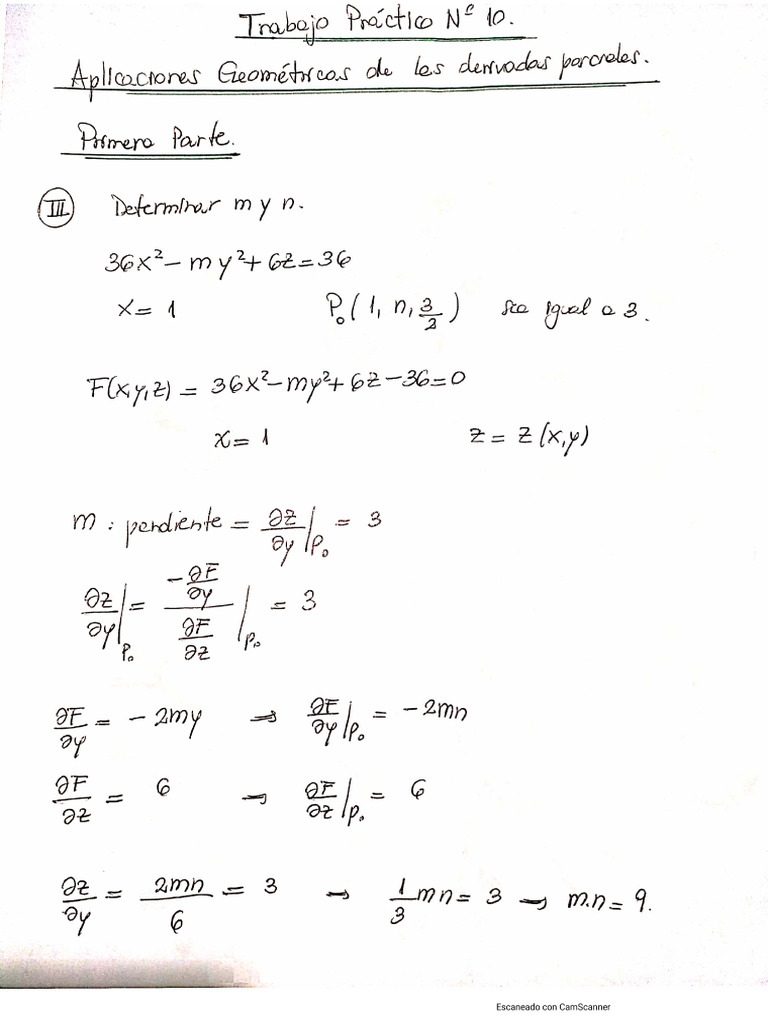 Trabajo Práctico Nº 10.
Aplicaciones Geométricas de las derivadas parciales.
Primera Parte.
III Determinar m y n.
36x² - my² + 6z = 36
x = 1 P₀(1, n, 3/2) sea igual a 3.
F(x,y,z) = 36x² - my² + 6z - 36 = 0
x = 1 z = z(x,y)
m : pendiente = ∂z/∂y|P₀ = 3
∂z/∂y|P₀ = (-∂F/∂y)/(∂F/∂z)|P₀ = 3
∂F/∂y = - 2my → ∂F/∂y|P₀ = - 2mn
∂F/∂z = 6 → ∂F/∂z|P₀ = 6
∂z/∂y = 2mn/6 = 3 → 1/3 mn = 3 → m.n = 9.
Escaneado con CamScanner